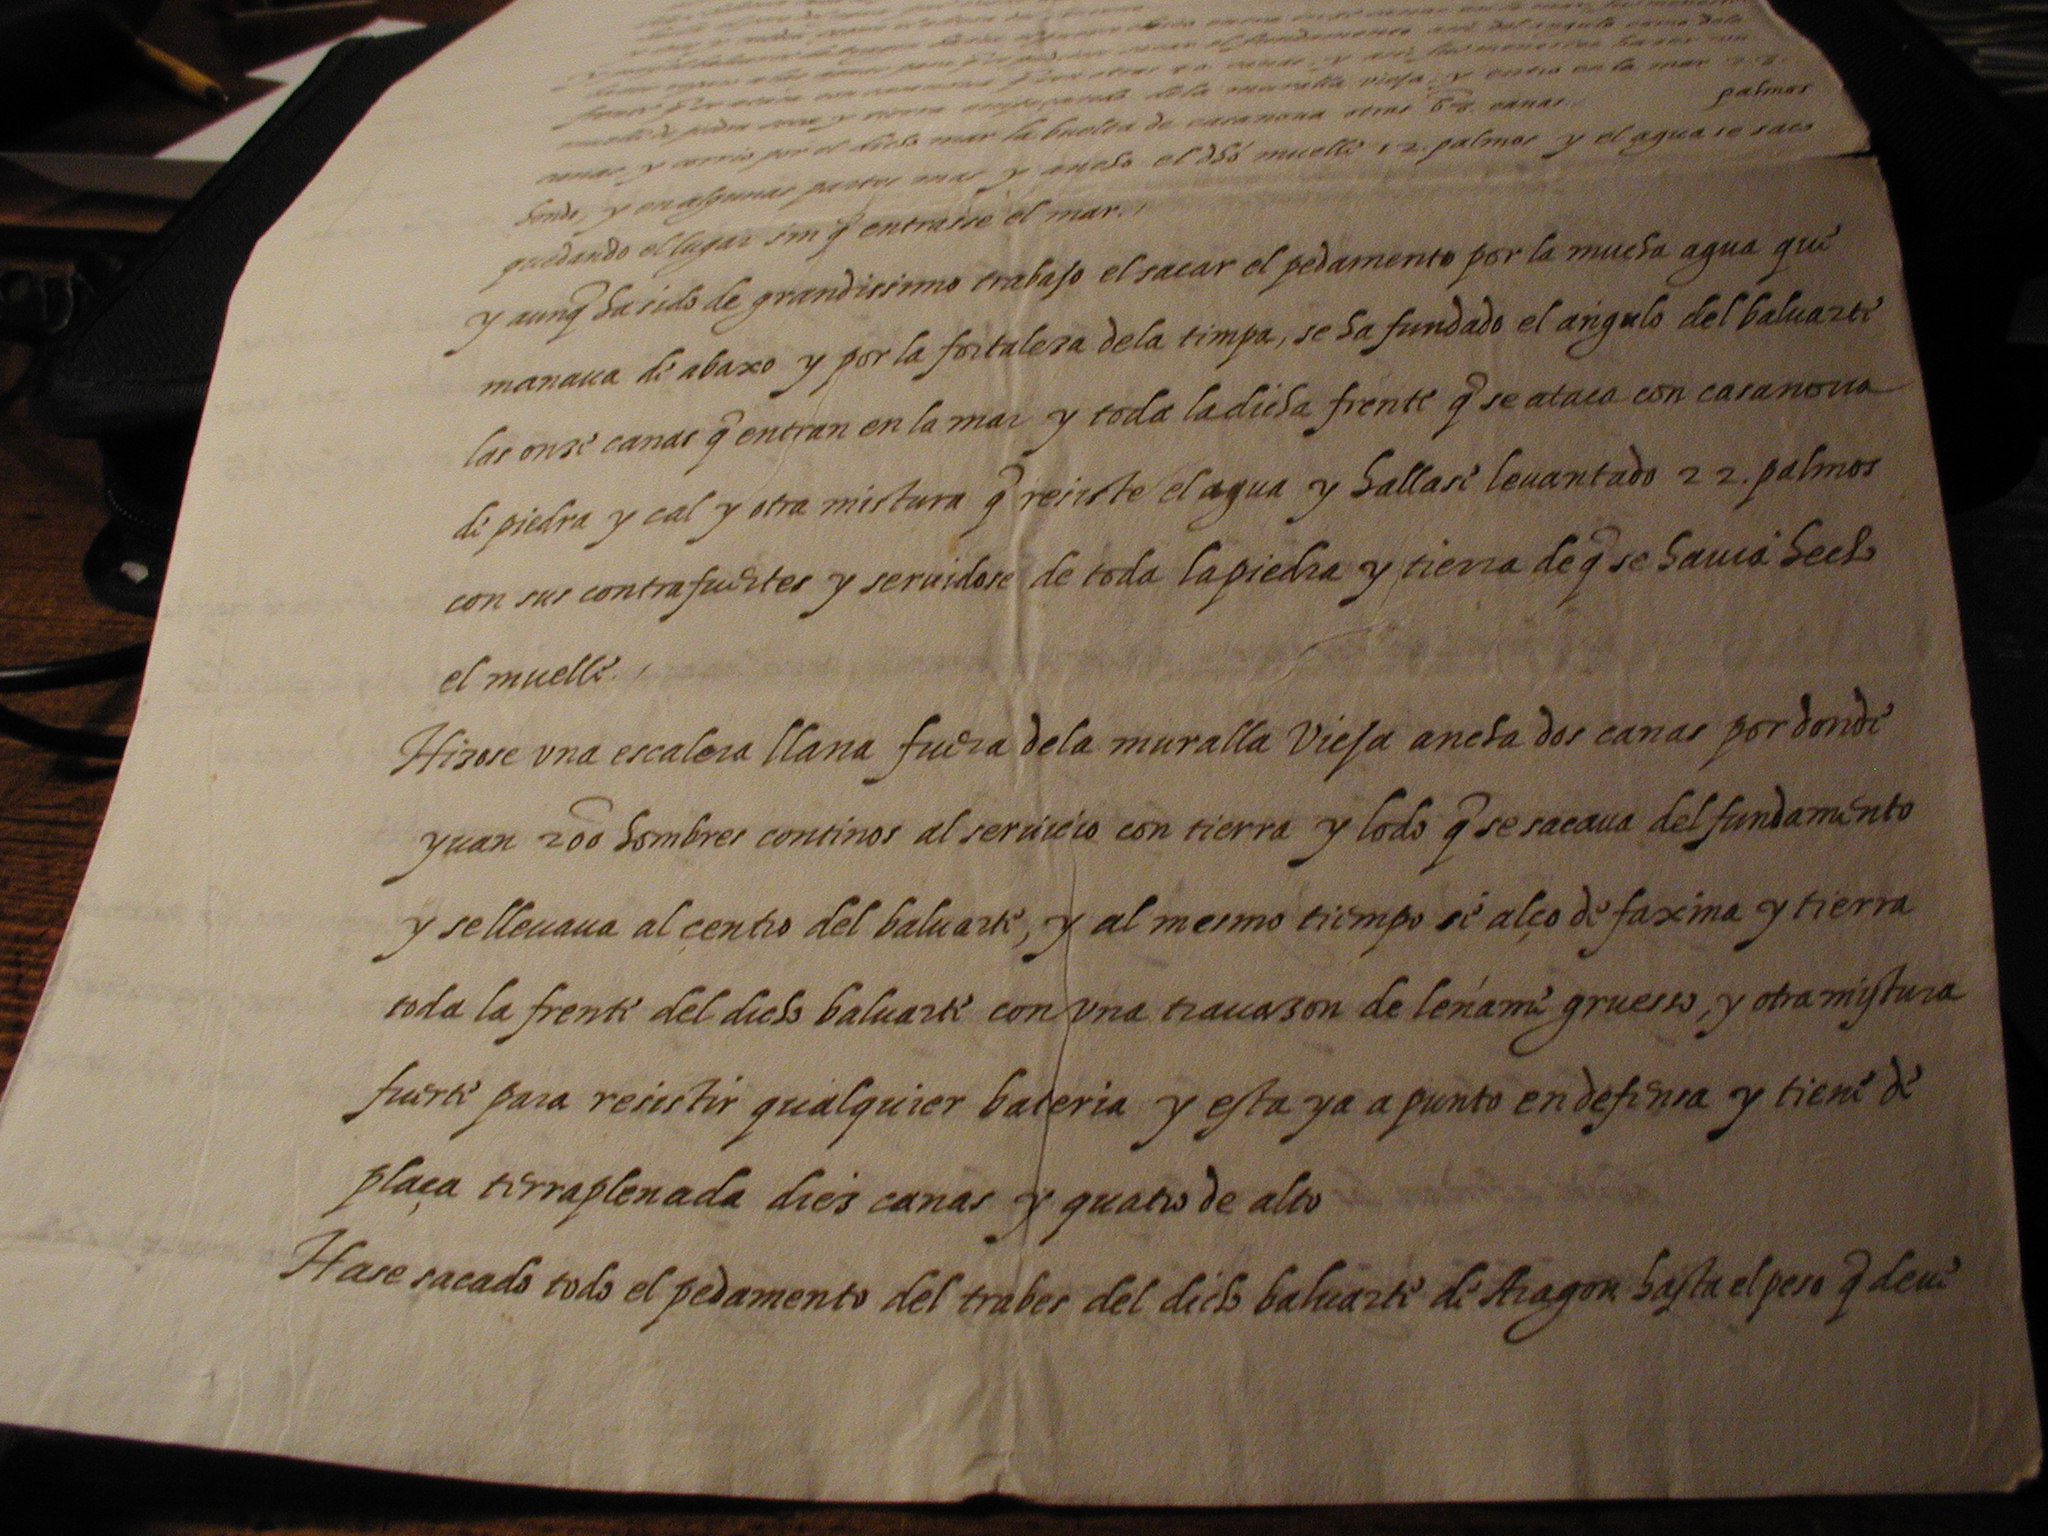 muelle de piedra y tierra de la muralla vieja, y entro en la mar 22.
canas y corrio por el dicho mar la buelta de casanova otras 68. canas. palmos
hondo, y en algunas partes mas y ancho el dho muelle 12. palmos y el agua se saco
quedando el lugar sin q̃ entrasse el mar.
y aunq̃ ha sido de grandissimo trabajo el sacar el pedamento por la mucha agua que
manaua de abaxo y por la fortaleza dela timpa, se ha fundado el angulo del baluarte
las onze canas q̃ entran en la mar y toda la dicha frente q̃ se ataca con casanoua
de piedra y cal y otra mistura q̃ resiste el agua y hallase leuantado 22. palmos
con sus contrafuertes y seruidose de toda la piedra y tierra de q̃ se hauia hecho
el muelle.
Hizose vna escalera llana fuera dela muralla Vieja ancha dos canas por donde
yuan 200 hombres continos al seruicio con tierra y lodo q̃ se sacaua del fundamento
y se lleuaua al çentro del baluarte, y al mesmo tiempo se alço de faxina y tierra
toda la frente del dicho baluarte con vna trauazon de leñame gruesso, y otra mistura
fuerte para resistir qualquier bateria y esta ya a punto en defensa y tiene de
plaça terraplenada dies canas y quatro de alto
Hase sacado todo el pedamento del trabes del dicho baluarte de Aragon hasta el peso q̃ deue